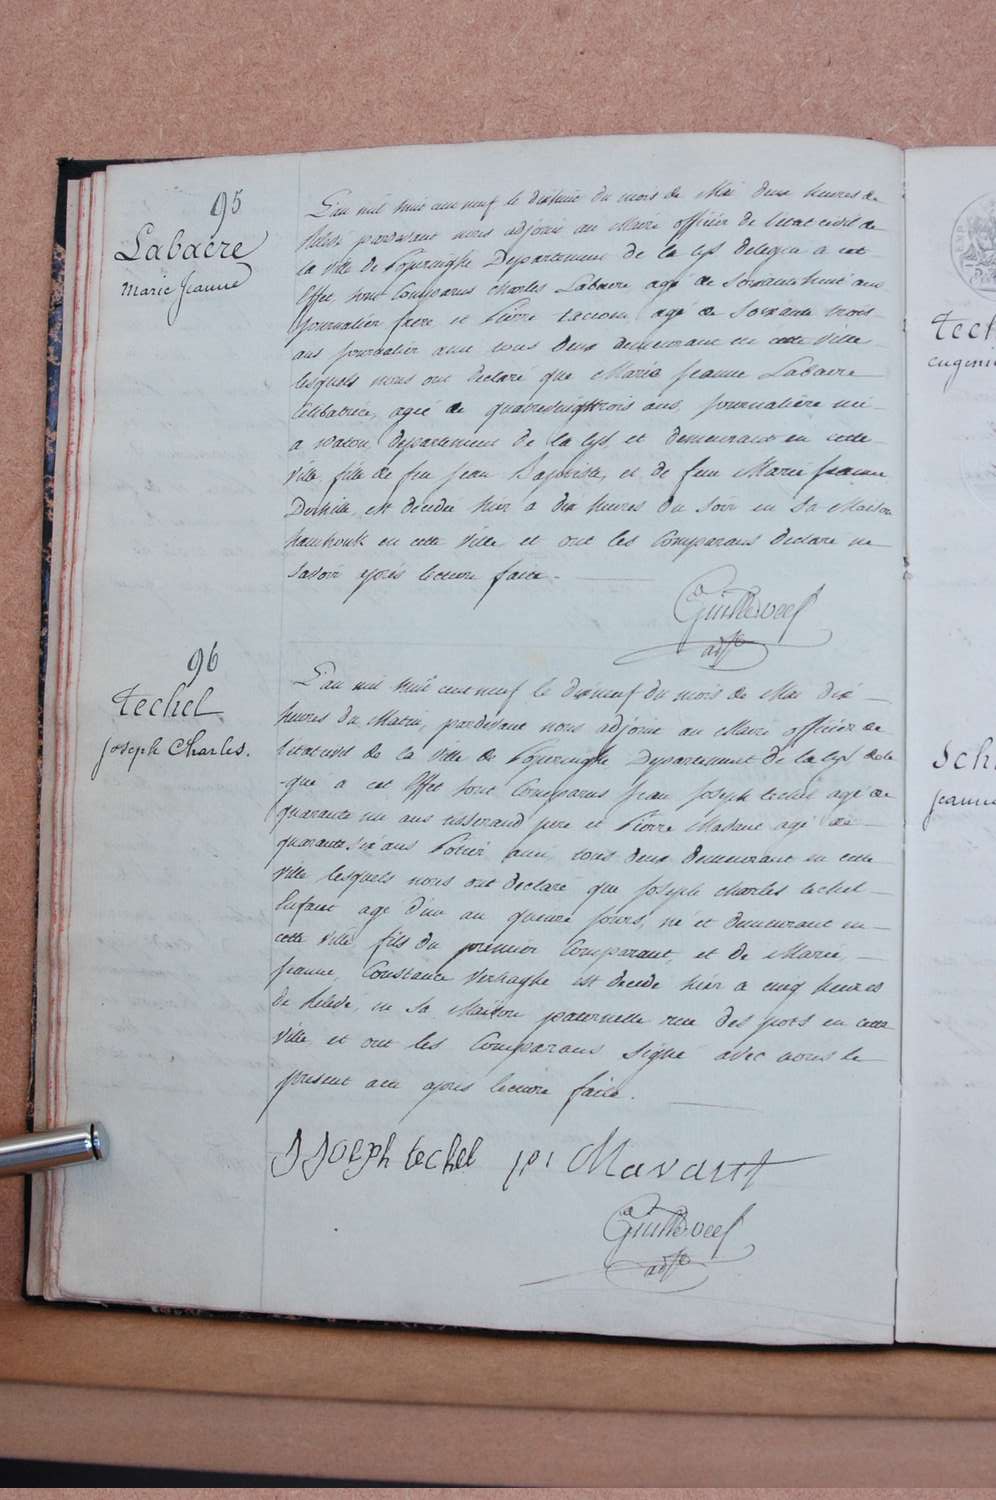 95
Labaere
Marie Jeanne
L'an mil huit cent neuf le dixhuit du mois de Mai deux heures de
relevé pardevant nous adjoint au Maire officier de l'etat civil de
la ville de Poperinghe Departement de la Lys delegué a cet
Effet, sont Comparus Charles Labaere agé de Soixante huit ans
journalier frere et Pierre agé de Soixante trois
ans journalier ami tous deux demeurant en cette ville
lesquels nous ont declaré que Marie Jeanne Labaere
celibatrice, agée de quatrevingttrois ans, journalière née
a Watou, departement de la Lys, et demeurant en cette
ville fille de feu Jean Baptiste, et de feue Marie Jeanne
est decedée hier a dix heures du Soir en Sa Maison
en cette ville, et ont les Comparans declaré ne
savoir après lecture faite.
C Guilleweel
adjt
96
Techel
Joseph Charles.
L'an mil huit cent neuf le dixneuf du mois de Mai dix
heures du Matin, pardevant nous adjoint au Maire officier de
l'etat civil de la ville de Poperinghe Departement de la Lys dele
gué a cet Effet sont Comparus Jean Joseph techel agé de
quarante un ans tisserand pere et Pierre Mavaut agé de
quarante six ans Potier ami, tous deux demeurant en cette
ville lesquels nous ont declaré que Joseph Charles techel
Enfant agé d'un an quinze jours, né et demeurant en
cette ville, fils du premier Comparant, et de Marie,
Jeanne, Constance Verhaghe est decedé hier a cinq heures
de relevée, en Sa Maison paternelle rue des pots en cette
ville, et ont les Comparans signé avec nous le
present acte après lecture faite.
J Joseph techel pi Mavaut
C Guilleweel
adjt
Tech
eugenie
Sch
Jeanne